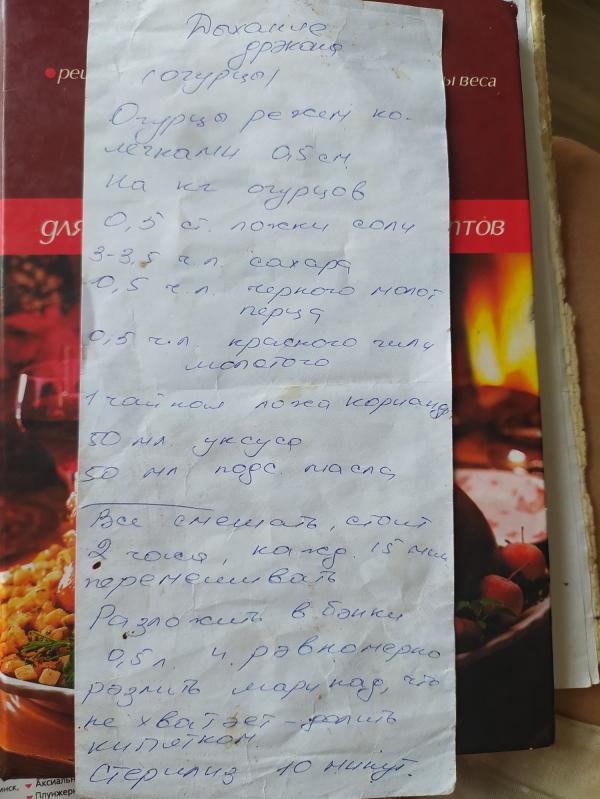 Дыхание
дракона
(огурцы)
• рец
ы веса
Огурцы режем ко-
лечками 0,5 см.
На кг огурцов
0,5 ст. ложки соли
для
птов
3-3,5 ч.л. сахара
0,5 ч.л. черного молот
перца
0,5 ч.л. красного чили
молотого
1 чайная ложка кориандр.
50 мл. уксуса
50 мл подс. масла
Все смешать, стоит
2 часа, кажд. 15 мин
перемешивать
Разложить в банки
0,5 л. и равномерно
разлить маринад, что
не хватает - долить
кипятком.
Стерилиз 10 минут.
инск,
Аксиаль
Плунжерн